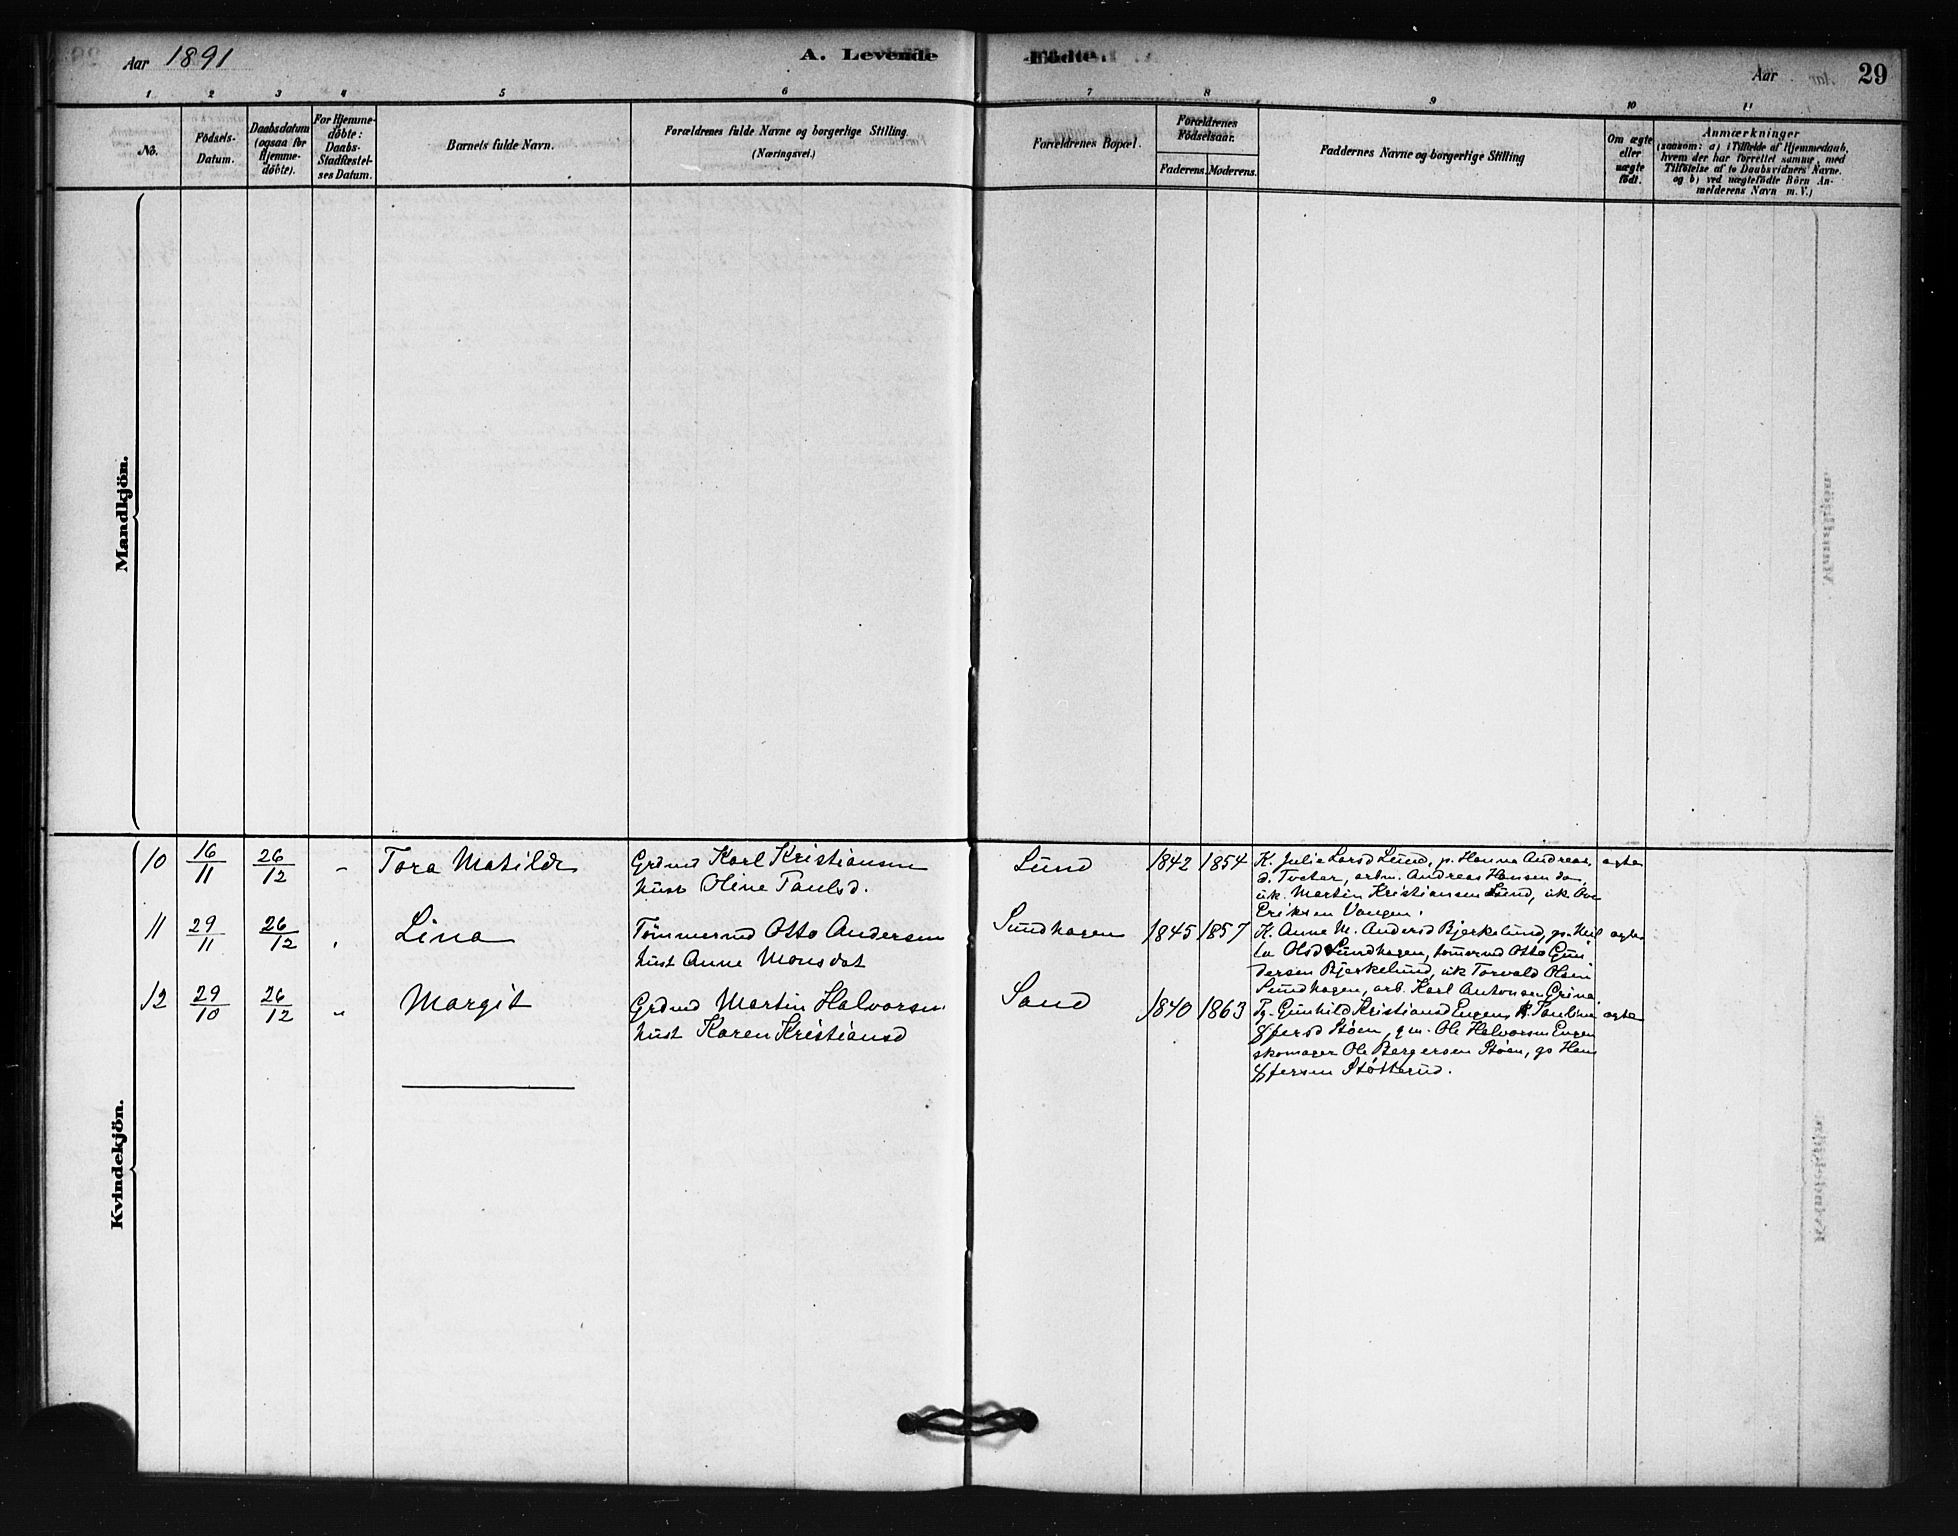 Aar 1891
A. Levende
Födte.
Aar
29
1 2 3 4 5 6 7 8 9 10 11
No.
Födsels-
Datum.
Daabsdatum
(ogsaa for
Hjemme-
döbte).
For Hjemme-
döbte:
Daabs-
Stadfæstel-
ses Datum.
Barnets fulde Navn.
Forældrenes fulde Navne og borgerlige Stilling
(Næringsvei.)
Forældrenes Bopæl.
Forældrenes
Födselsaar.
Faderens. Moderens.
Faddernes Navne og borgerlige Stilling
Om ægte
eller
uægte
födt.
Anmærkninger
(saasom: a) i Tilfælde af Hjemmedaab,
hvem der har forrettet samme, med
Tilföielse af to Daabsvidners Navne.
og b) ved uægtefödte Börn An-
melderens Navn m. V.)
Mandkjön.
Kvindekjön.
10 16/11 26/12 " Tora Matilde
Grdmd Karl Kristiansen
hust Oline Paulsd.
Lund 1842 1854
K. Julie Larsd Lund, p. Hanna Andreas.
d. Tveter, arbm. Andreas Hansen do,
uk. Martin Kristiansen Lund, uk
Eriksen Vangen.
ægte
11 29/11 26/12 " Lina
Tömmermd Otto Andersen
hust Anne Monsdat
Sundhagen 1845 1857
K. Anne M. Andersd Bjerkelund,
Olsd Sundhagen, tömermd Otto Gun
dersen Bjerkelund, uk Torvald Olsen
Sundhagen, arb. Karl Antonsen
ægte
12 29/10 26/12 " Margit
Grdmd Martin Halvorsen
hust Karen Kristiansd
Sand 1840 1863
Pg. Gunhild Kristiansd Engen, P. Pauline
Støen, gm. Ole Halvorsen Engen
skomager Ole Bergersen Støen, gs Hans
Støtterud.
ægte